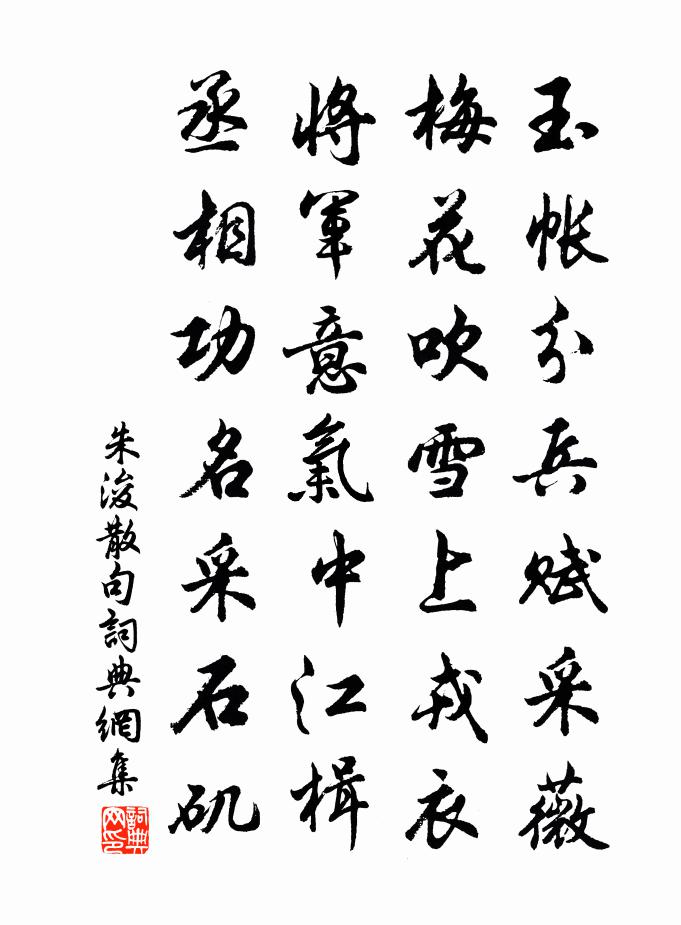 玉帐分兵赋采薇
梅花吹雪上戎衣
將軍意氣中江楫
丞相功名采石矶
朱浚散句詞典網集
詞典
网印